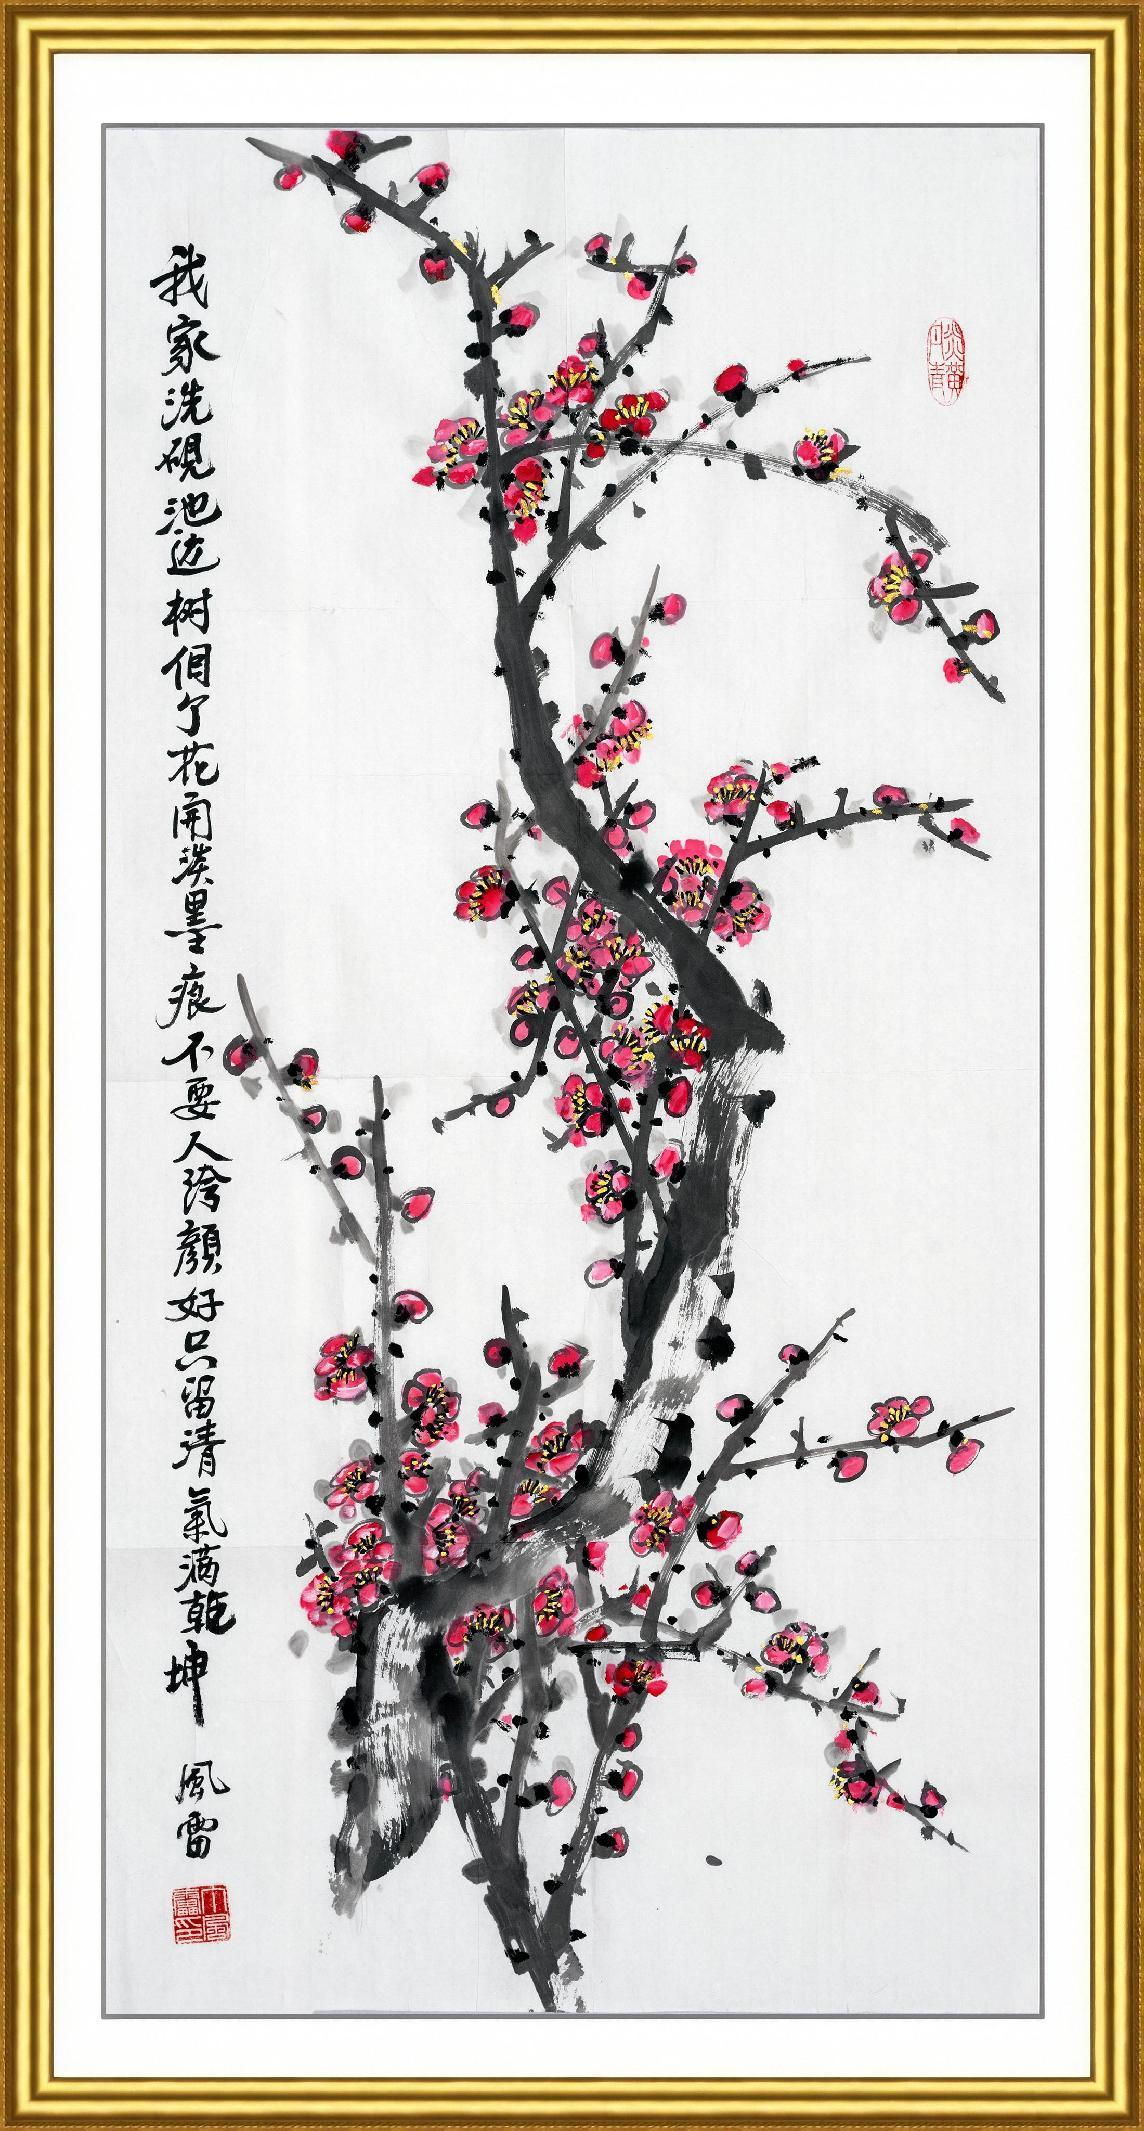 我家洗硯池边树個个花開淡墨痕不要人誇顏好只留清氣滿乾坤
風雷